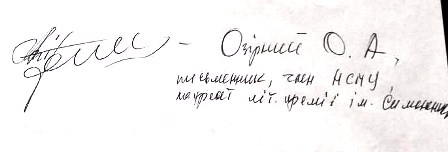 – Озірний О. А.,
письменник, член НСПУ,
лауреат літ. премії ім.